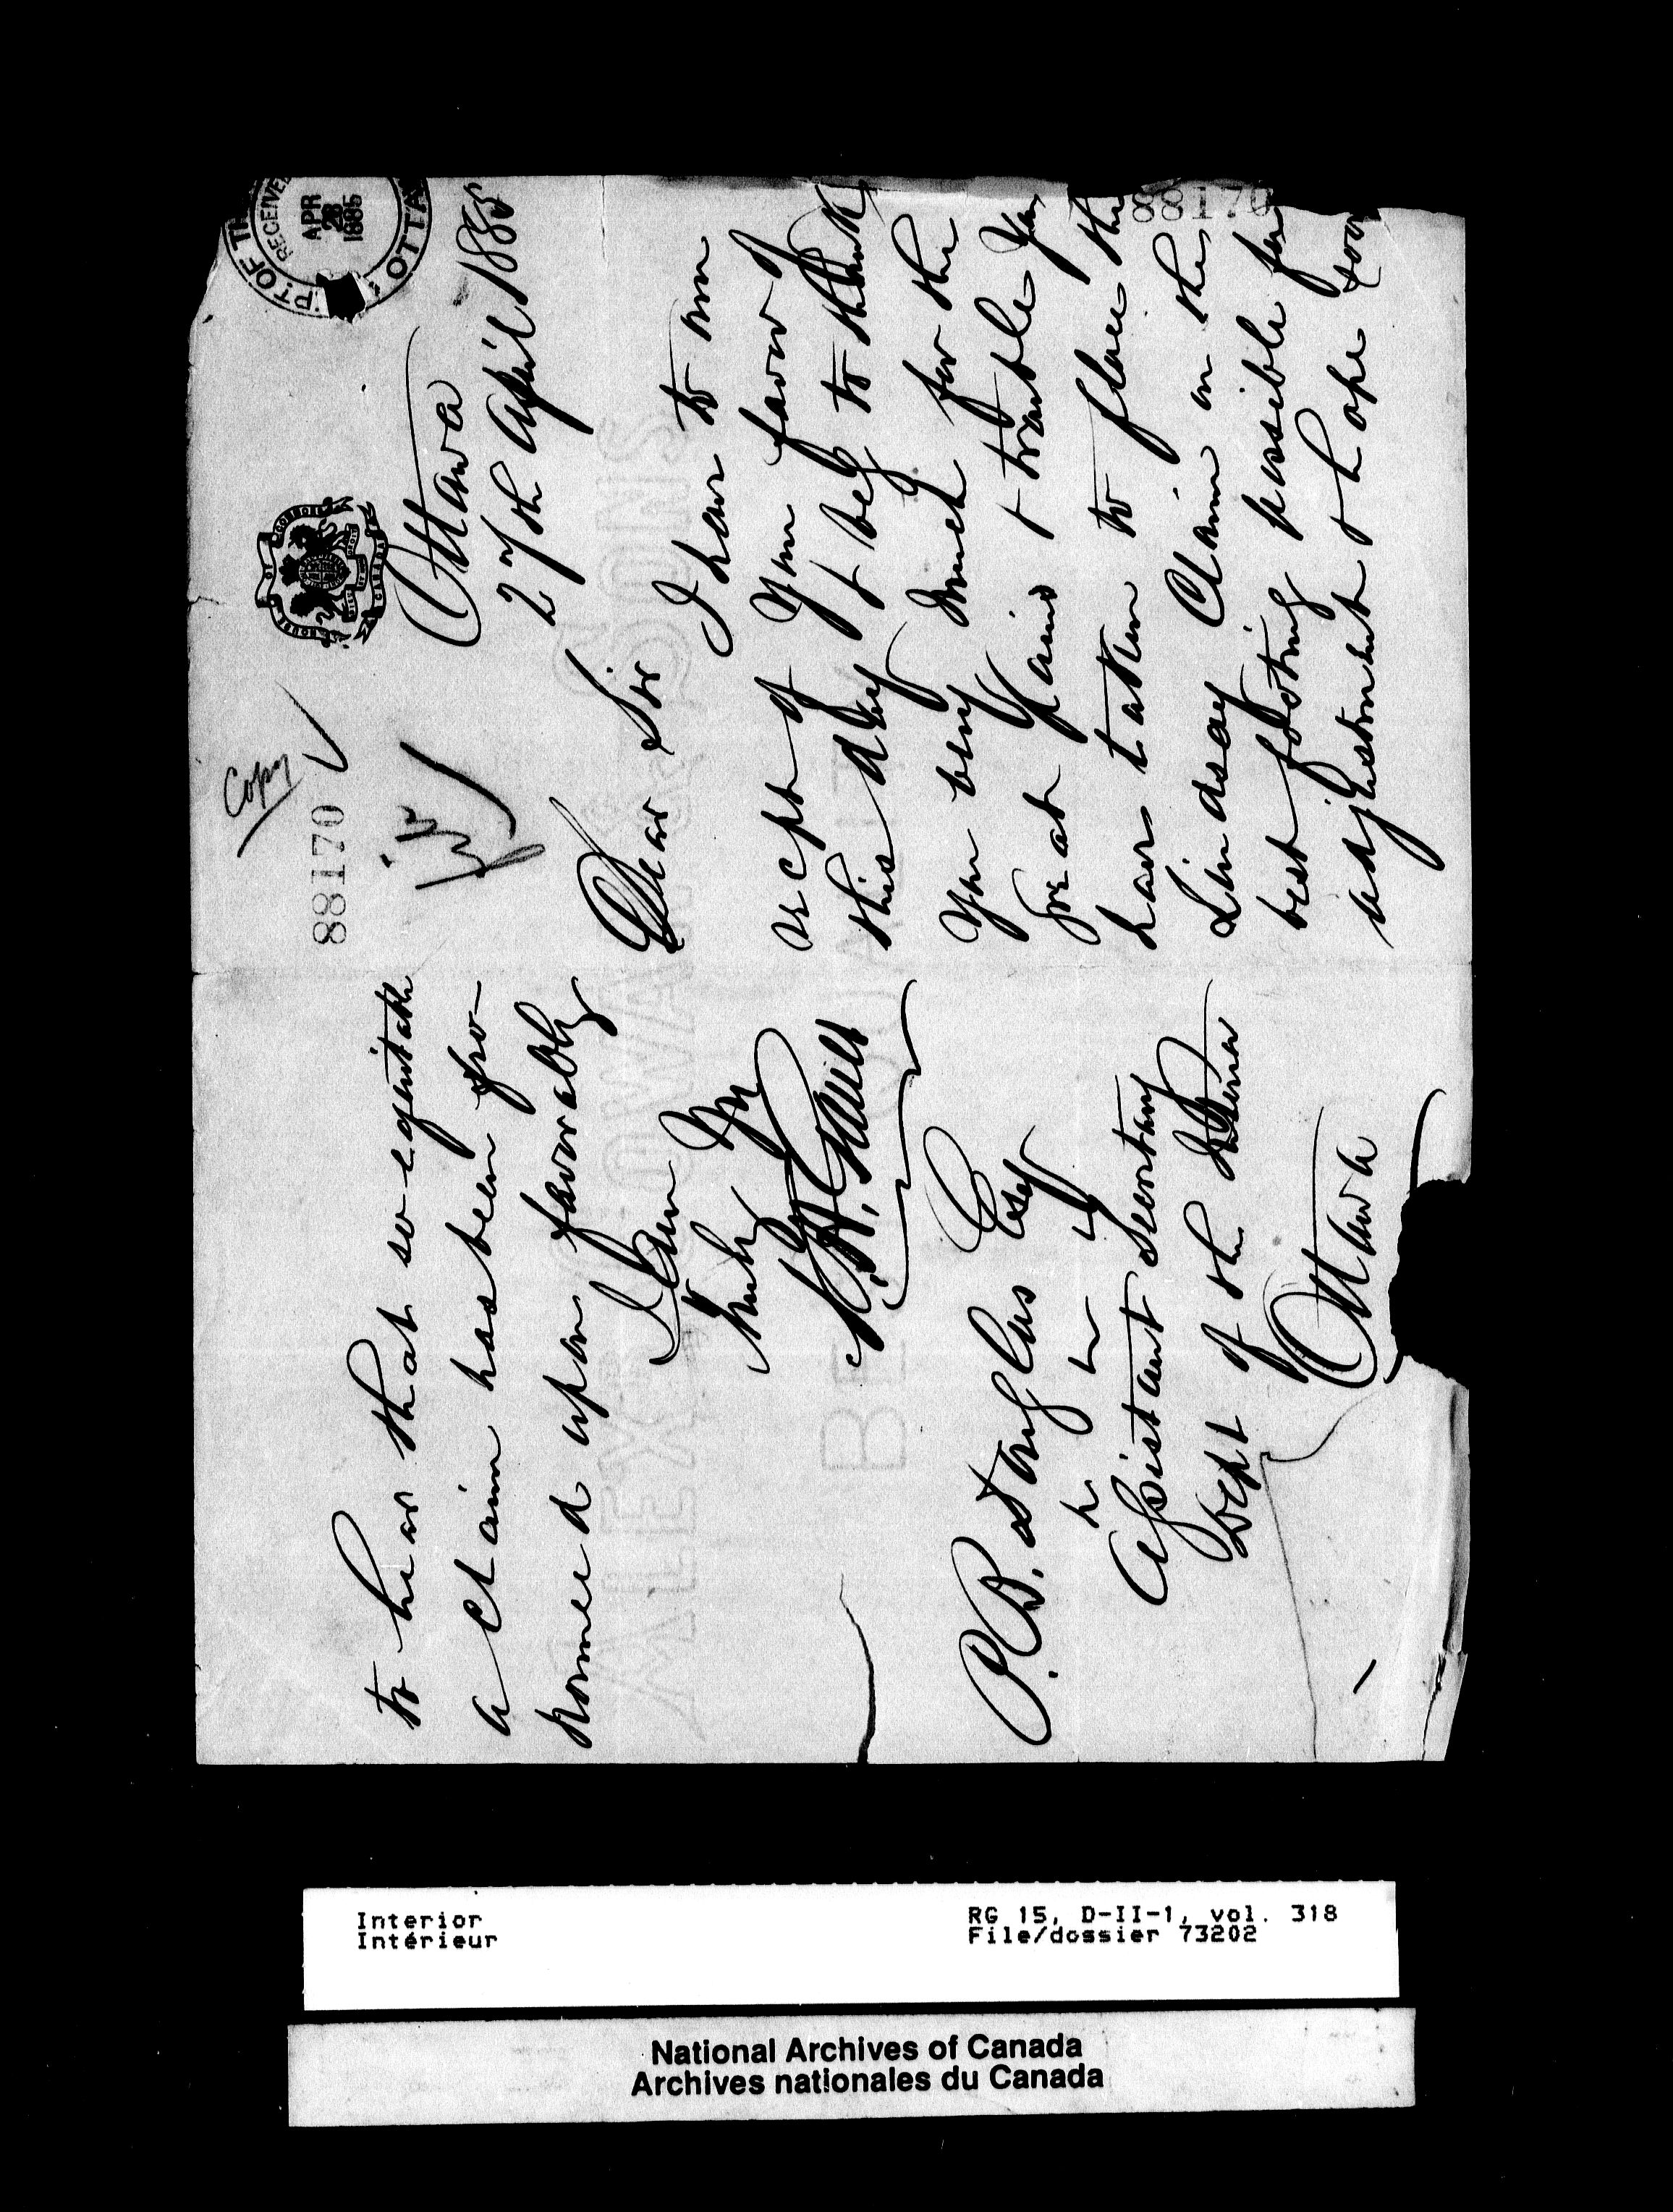 Copy
88170
APR
28
1885
RECEIVE
PT OF T
OTTA
HOUSE OF COMMONS
CANADA
Ottawa
27th April 1885
Dear Sir
I have to
this day & beg to thank
You very much for the
great pains & trouble You
have taken to place the
88170
Lindsay Claim on the
best footing possible for
adjustment & hope soon
to hear that so equitable
a Claim has been pro-
nounced upon favorably
I am
Truly
P. B. Douglas Esq
Assistant Secretary
Dept of the
Ottawa
Interior
Intérieur
RG 15, D-II-1, vol. 318
File/dossier 73202
National Archives of Canada
Archives nationales du Canada